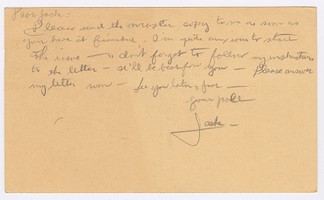 Dear Jack:
Please send the master copy to me as soon as
you have it finished. I'm quite anxious to start
the move — & don't forget to follow my instructions
to the letter — it'll be best for you — please answer
my letter now — See you later, for —
Your pal
Jack —